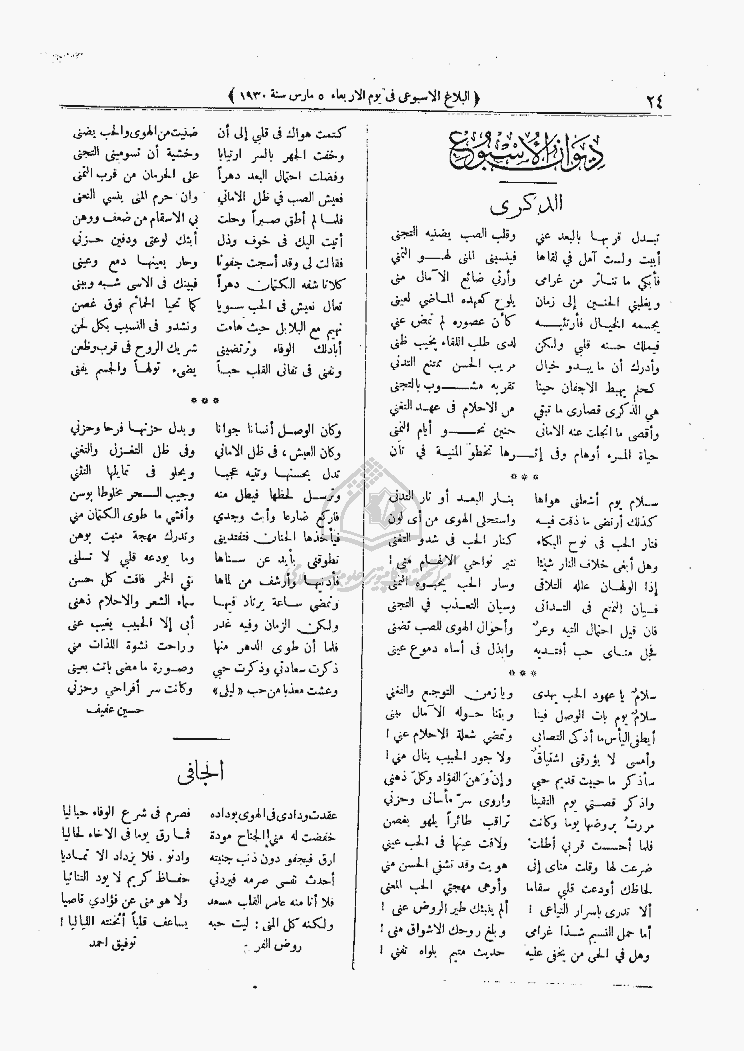 ٢٤
﴿ البلاغ الاسبوعى فى يوم الاربعاء ٥ مارس سنة ١٩٣٠ ﴾
ديوان الأسبوع
الذكرى
تبدل قربها بالبعد عني وقلب الصب يضنيه التجنى
أبيت ولست آمل في لقاها فينسيني المنى لهو التمنى
فأبكي ما تناثر من غرامى وأرثي ضائع الآمال منى
ويغلبني الحنين إلى زمان يلوح كعهده الماضي لعينى
يجسمه الخيال فأرتئيه كأن عصوره لم تمض عني
فيملك حسنه قلبي ولكن لدى طلب اللقاء يخيب ظنى
وأدرك أن ما يبدو خيال مريب الحسن ممتنع التدني
كحلم يهبط الاجفان حينا تقربه مشوب بالتجنى
هي الذكرى قصارى ما تبقي من الاحلام فى عهد التغنى
وأقصى ما انجلت عنه الامانى حنين نحو أيام التمنى
حياة المرء أوهام وفى إثرها تخطو المنية في تأن
* * *
سلام يوم أشعلني هواها بنار البعد أو نار التدنى
كذلك أرتضى ما ذقت فيه واستحلى الهوى من أى لون
فنار الحب فى نوح البكاء كنار الحب فى شدو التغنى
وهل أبغى خلاف النار شيئا تثير نواحي الانغام مني ؛
إذا الولهان عاله التلاقى وسار الحب يحبوه التمنى
فسيان التمتع فى التدانى وسيان التعذب فى التجنى
فان قيل احتمال التيه وعر وأحوال الهوى للصب تضنى
فجل مناى حب أفتديه وابذل فى أساه دموع عينى
* * *
سلام يا عهود الحب يهدى ويا زمن التوجيع والتغنى
سلام يوم بات الوصل فينا وبتنا حوله الآمال نبنى
أيطفي اليأس ما أذكى التصابى وتمضي شعلة الاحلام عنى !
وأمسى لا يؤرقنى اشتياق ولا جور الحبيب ينال منى !
سأذكر ما حييت قديم حبي وإن وهن الفؤاد وكل ذهنى
واذكر قصتي يوم التقينا واروى سر مأساتى وحزنى
مررت بروضها يوما وكانت تراقب طائراً يلهو بغصن
فلما أحست قربي أطلت ولاقت عينها فى الحب عينى
ضرعت لها وقلت مناى إنى هويت وقد تشقي الحسن منى
لحاظك أودعت قلبي سقاما وأوهى مهجتي الحب المعنى
ألا تدرى باسرار التياعى ! ألم ينبئك طير الروض عنى !
أما حمل النسيم شذا غرامى وبلغ روحك الاشواق منى !
وهل في الحى من يخفى عليه حديث متيم بلواه تفنى !
كتمت هواك فى قلبي إلى أن ضنيت من الهوى والحب يضنى
وخفت الجهر بالسر ارتيابا وخشية أن تسومينى التجنى
وفضلت احتمال البعد دهراً على الحرمان من قرب التمنى
فعيش الصب في ظل الامانى وان حرم المنى ينسي التعنى
فلما لم أطق صبراً وحلت بي الاسقام من ضعف ووهن
أتيت اليك فى خوف وذل أبثك لوعتى ودفين حزنى
فقالت لى وقد أسجت جفونا وحار بعينها دمع وعينى
كلانا شفه الكتمان دهراً فبينك فى الاسى شبه وبينى
تعال نعيش فى الحب سويا كما تحيا الحمائم فوق غصن
نهيم مع البلابل حيث هامت ونشدو فى النسيب بكل لحن
أبادلك الوفاء وترتضينى شريك الروح فى قرب وظعن
ونفنى فى تفانى القلب حباً يضىء تولهاً والجسم يفنى
* * *
وكان الوصل أنسانا جوانا وبدل حزنها فرحا وحزنى
وكان العيش فى ظل الامانى وفى ظل التغزل والتغنى
تدل بحسنها وتتيه عجبا ويحلو فى تمايلها التثنى
وترسل لحظها فيطل منه وجيب السحر مخلوطا بوسن
فأركع ضارعا وأبث وجدي وأفشي ما طوى الكتمان منى
فيأخذها الحنان فتفتدينى وتدرك مهجة منيت بوهن
تطوقني بأيد عن سناها وما يودعه قلبي لا تسلنى
فأدنيها وأرشف من لماها نقي الخمر فاقت كل حسن
ونمضى ساعة يرتاد فيها سماء الشعر والاحلام ذهنى
ولكن الزمان وفيه غدر أبى إلا الحبيب يغيب عنى
فلما أن طوى الدهر منها وراحت نشوة اللذات منى
ذكرت سعادتي وذكرت حبي وصورة ما مضى باتت بعينى
وعشت معذبا من حب « ليلى » وكانت سر أفراحي وحزنى
حسين عفيف
الجافى
عقدت ودادى فى الهوى بوداده فصرم فى شرع الوفاء حباليا
خفضت له منى الجناح مودة فما رق يوما فى الاخاء لحاليا
ارق فيجفو دون ذنب جنيته وادنو . فلا يزداد الا تماديا
أحدث نفسى صرمه فيردنى حفاظ كريم لا يود التنائيا
فلا أنا منه عامر القلب مسعد ولا هو منى عن فؤادي قاصيا
ولكنه كل المنى : ليت حبه يساعف قلباً أثخنته اللياليا !
روض الفر توفيق احمد